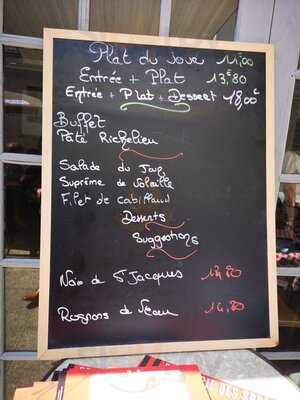 Plat du Jour 11,00
Entrée + Plat 13€80
Entrée + Plat + Dessert 18,00€
Buffet
Pâté Richelieu
Salade du Jour
Suprême de Volaille
Filet de Cabillaud
Desserts
Suggestions
Noix de St Jacques
Rognons de Veau